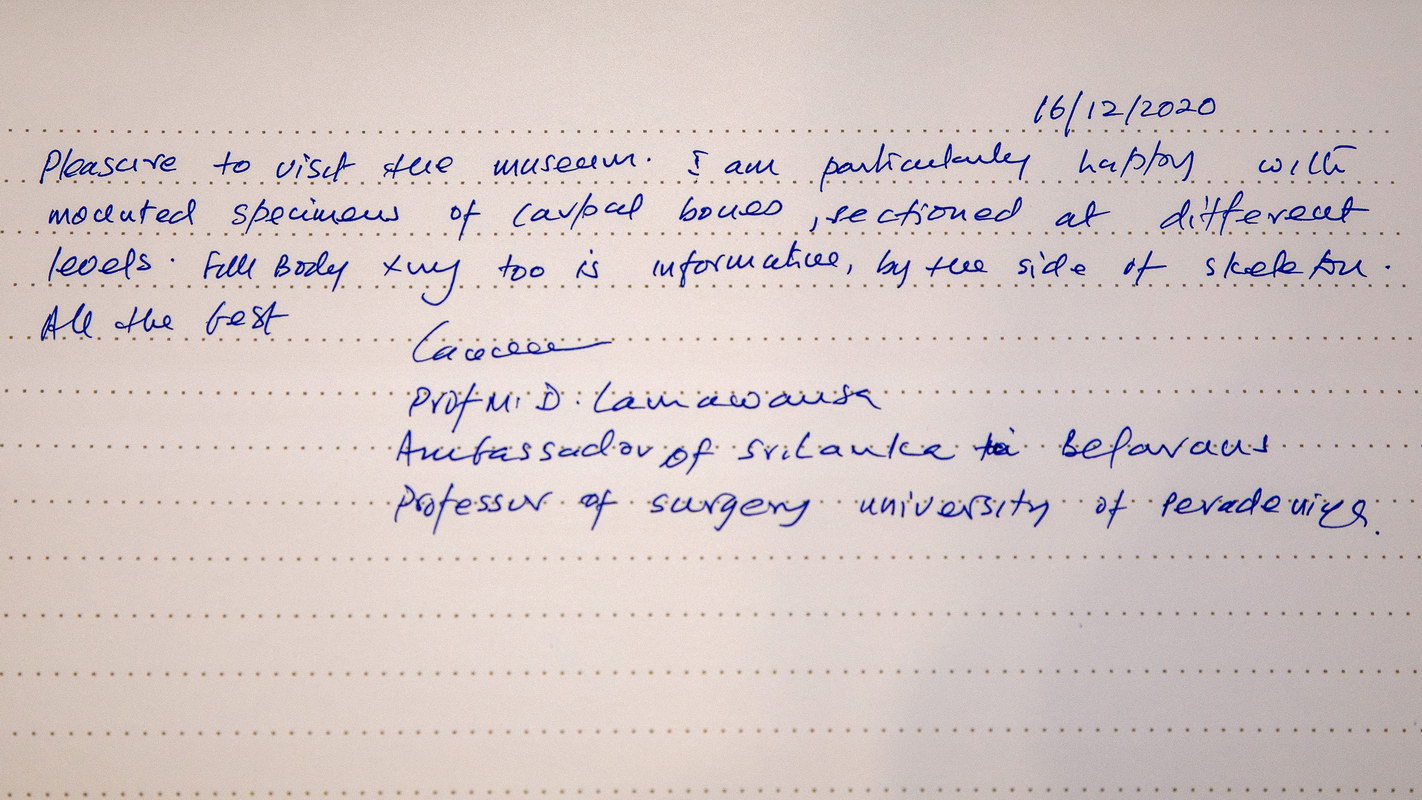 16/12/2020
Pleasure to visit the museum. I am particularly happy with
mounted specimens of carpal bones, sectioned at different
levels. Full Body xray too is informative, by the side of skeleton.
All the best
Prof M. D. Lamawansa
Ambassador of Sri Lanka to Belarus
Professor of surgery university of Peradeniya.